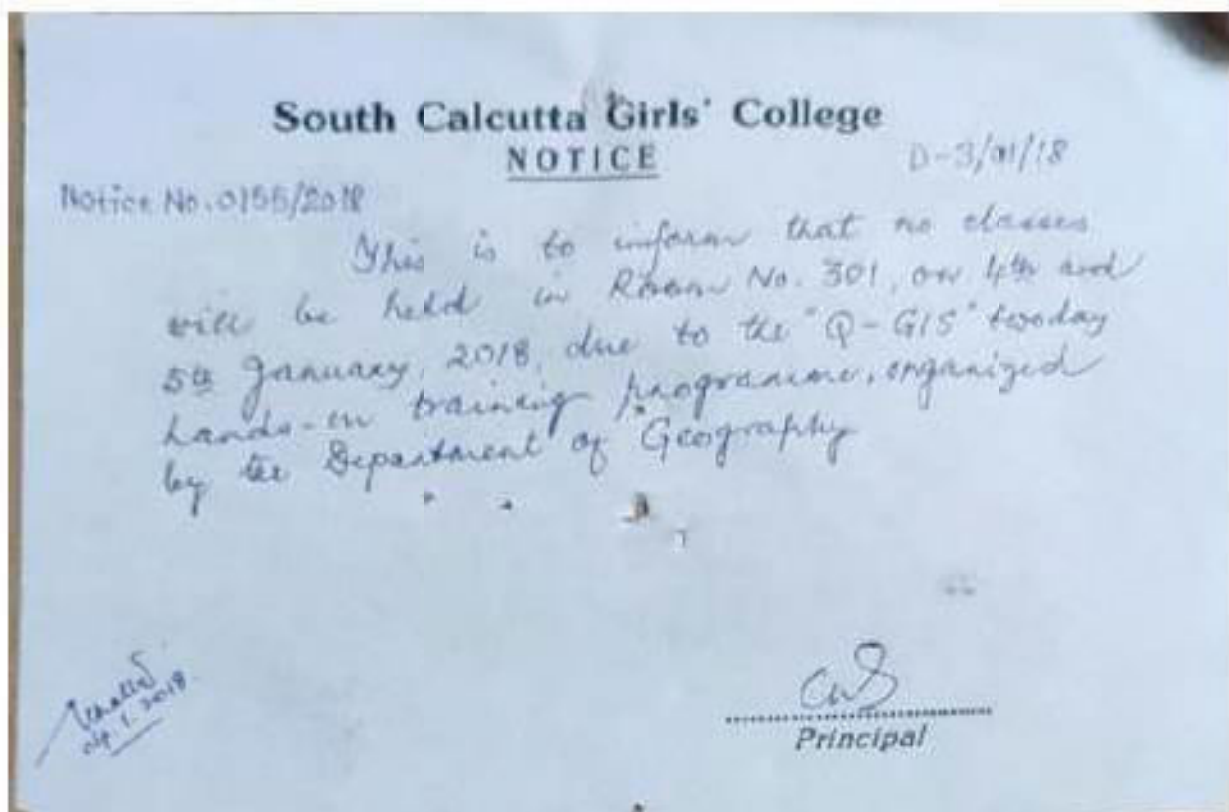 South Calcutta Girls' College
NOTICE
D-3/01/18
Notice No. 0155/2018
This is to inform that no classes
will be held in Room No. 301, on 4th and
5th January, 2018, due to the "Q-GIS" twoday
hands-on training programme, organized
by the Department of Geography
Principal